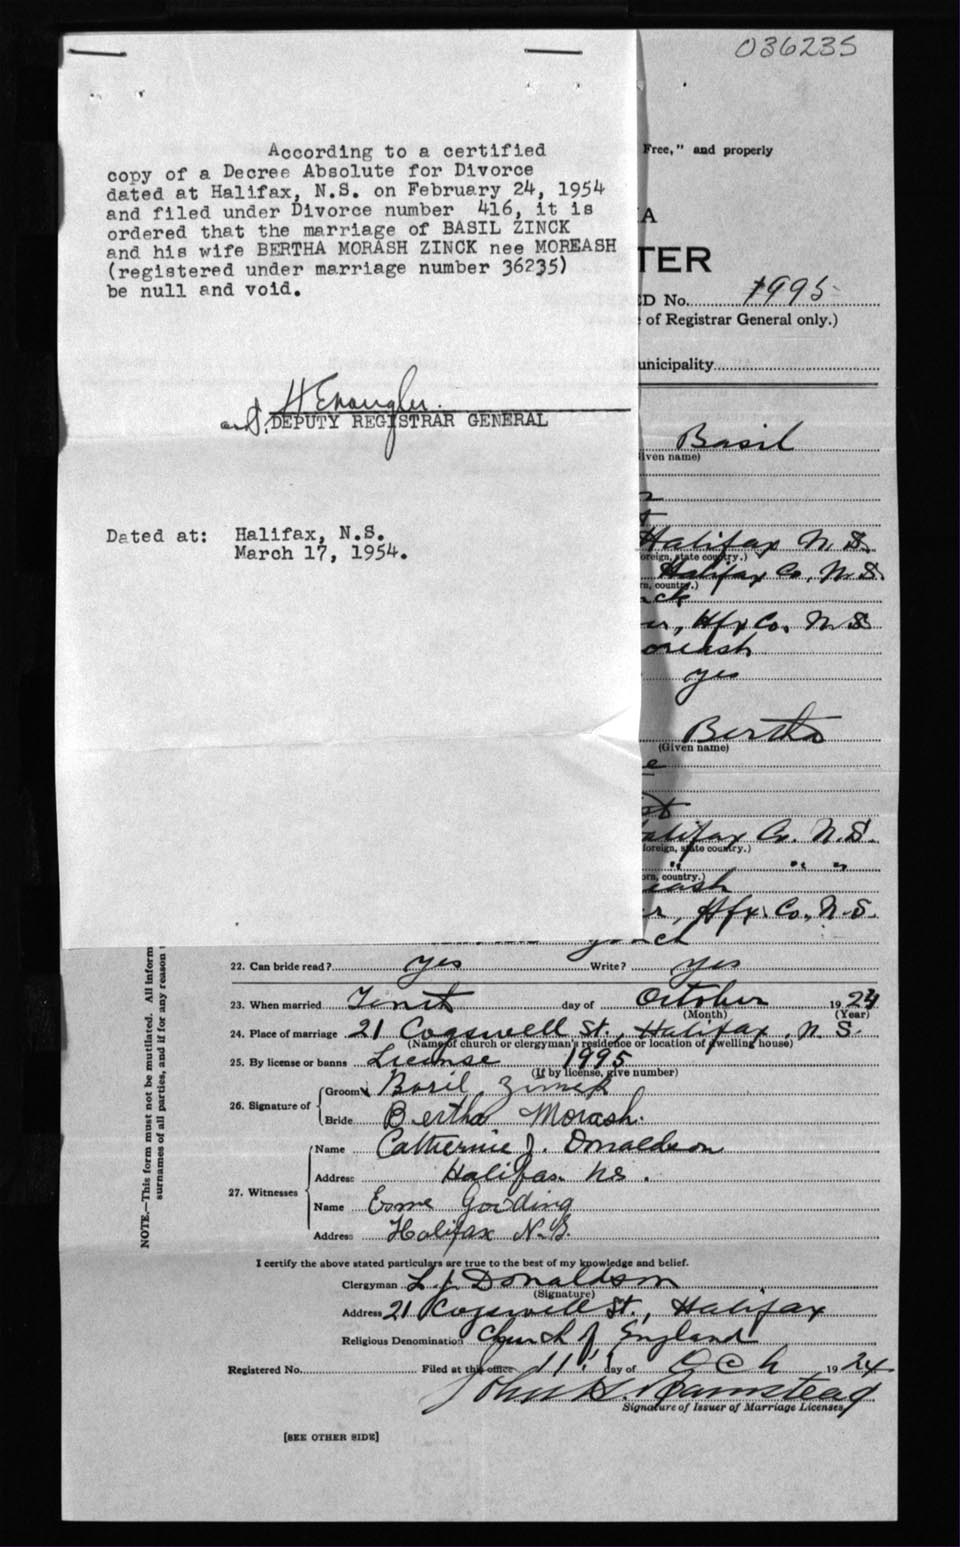 036235
According to a certified
copy of a Decree Absolute for Divorce
dated at Halifax, N.S. on February 24, 1954
and filed under Divorce number 416, it is
ordered that the marriage of BASIL ZINCK
and his wife BERTHA MORASH ZINCK nee MOREASH
(registered under marriage number 36235)
be null and void.
DEPUTY REGISTRAR GENERAL
Dated at: Halifax, N.S.
March 17, 1954.
Free," and properly
A
TER
D No. 1995
of Registrar General only.)
unicipality
Basil
iven name)
Halifax N.S.
oreign, state country.)
Halifax Co, N.S.
rn, country.)
ck
er, Hfx Co. N.S
oreash
yes
Bertha
(Given name)
e
st
alifax Co. N.S.
foreign, state country.)
" " "
orn, country.)
eash
er, Hfx. Co., N.S.
22. Can bride read? yes Write? yes
23. When married Tenth day of October 1924
(Month) (Year)
24. Place of marriage 21 Cogswell St., Halifax, N.S.
(Name of church or clergyman's residence or location of dwelling house)
25. By license or banns License 1995
(If by license, give number)
26. Signature of
Groom Basil Zinck
Bride Bertha Morash.
27. Witnesses
Name Catherine J. Donaldson
Address Halifax NS.
Name Esme Gooding
Address Halifax N.S.
I certify the above stated particulars are true to the best of my knowledge and belief.
Clergyman L. J. Donaldson
(Signature)
Address 21 Cogswell St., Halifax
Religious Denomination Church of England
Registered No. Filed at this office 11 day of Oct 1924
John H. Barnstead
Signature of Issuer of Marriage Licenses
[SEE OTHER SIDE]
NOTE.—This form must not be mutilated. All inform
surnames of all parties, and if for any reason